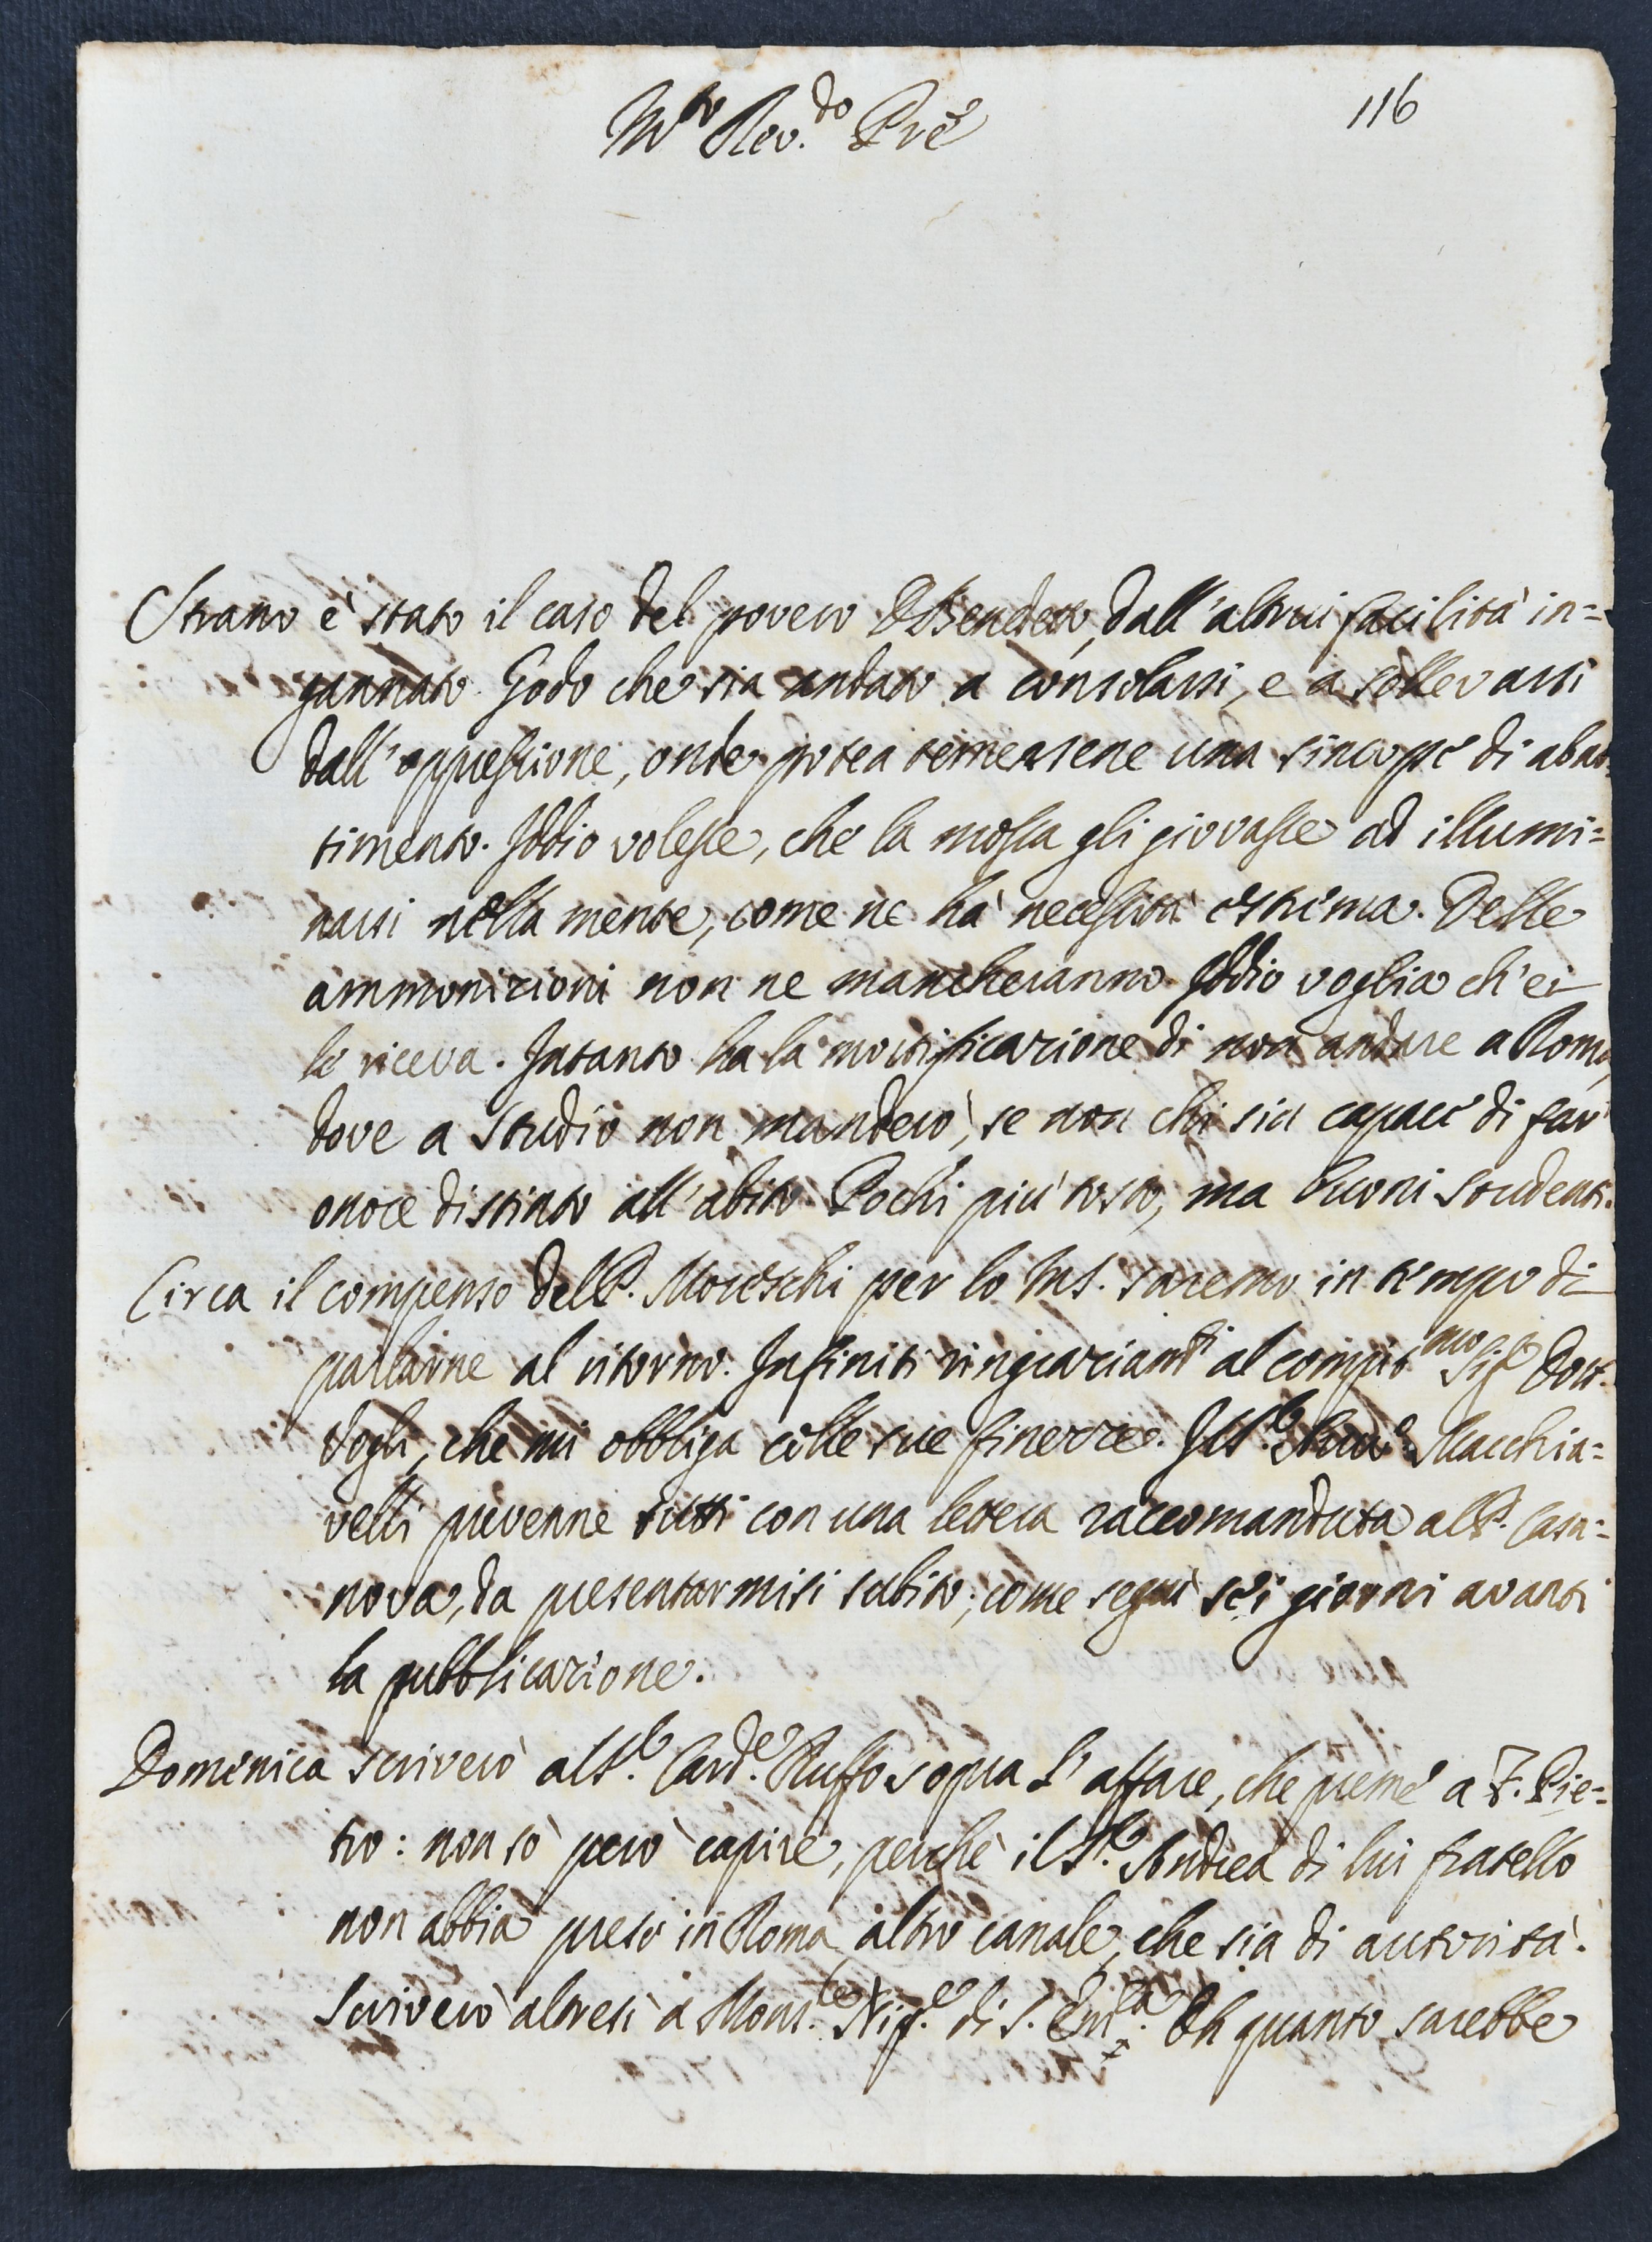 116
M.to Rev.do Pré
Strano è stato il caso del povero Benedetto, dall'altrui facilità in=
gannato. Godo che sia andato a consolarsi, e a sollevarsi
dall'oppressione, onde potea temersene una sincope di abat=
timento. Iddio volesse, che la mossa gli giovasse ad illumi=
narsi nella mente, come ne hà necessità estrema. Delle
ammonizioni non ne mancheranno. Iddio voglia ch'ei
le riceva. Intanto ha la mortificazione di non andare a Roma,
dove a Studio non manderò, se non chi sia capace di far
onore distinto all'abito. Pochi più tosto, ma buoni studenti.
Circa il compenso dell P. Moreschi per lo Ms. saremo in tempo di
parlarne al ritorno. Infiniti ringraziam.ti al compit.mo Sig.r Dott.
Vogli, che mi obbliga colle sue finezze. Il S.r Macchia=
velli prevenne tutti con una lettera raccomandata al P. Casa=
nova, da presentarmisi subito; come seguì sei giorni avanti
la pubblicazione.
Domenica scriverò al S.r Card.e Ruffo sopra l'affare, che preme a F. Pie=
tro: non sò però capire, perchè il S.r Andrea di lui fratello
non abbia preso in Roma altro canale, che sia di autorità.
Scriverò altresì a Mons.r di S. Em.za Oh quanto sarebbe